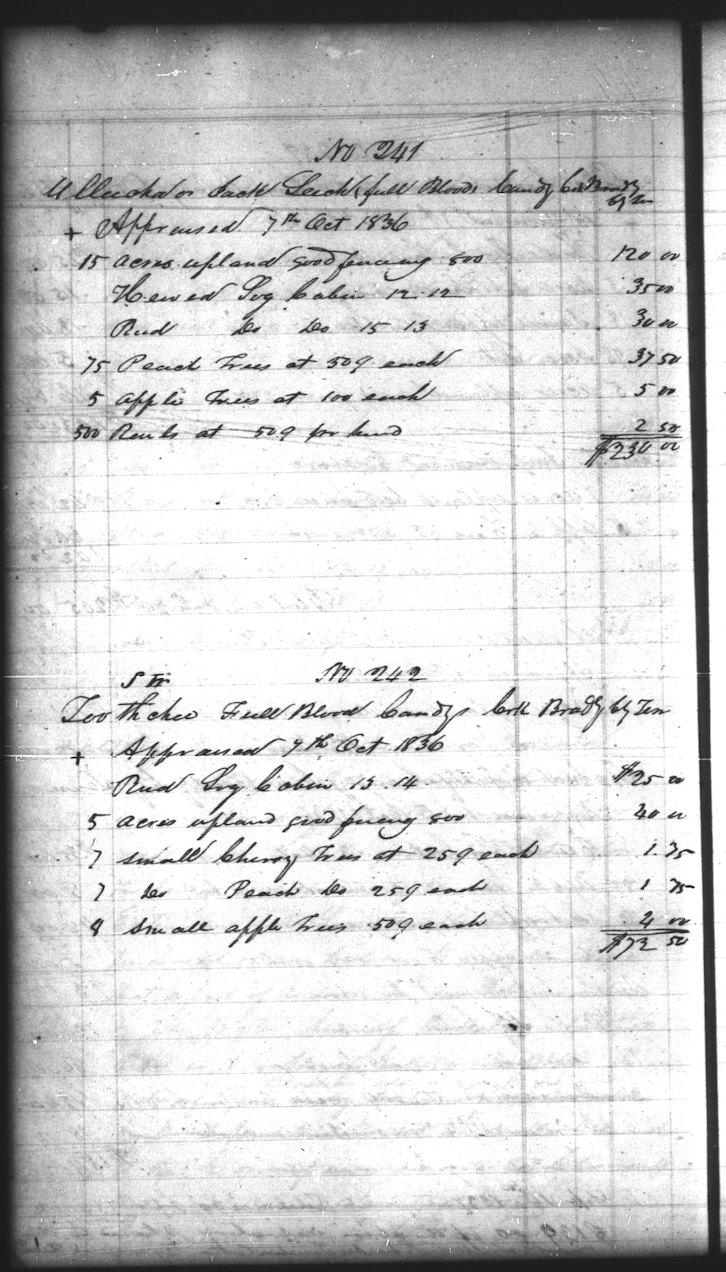 No 241
or Jack Leech full Blood Candys Crk Brady
by Ten
+ Appraised 7th Oct 1836
15 acres upland good fencing 800 120 00
Hewed Log Cabin 12.12 35 00
Rud Do Do 15 13 30 00
75 Peach Trees at 50¢ each 37 50
5 apple Trees at 100 each 5 00
500 Rails at 50¢ pr hund 2 50
$230 00
No 242
Toothchee Full Blood Candys Crk Brady by Ten
+ Appraised 7th Oct 1836
Rud Log Cabin 13.14 $25 00
5 acres upland good fencing 800 40 00
7 small Cherry Trees at 25¢ each 1.75
7 Do Peach Do 25¢ each 1 75
8 small apple Trees 50¢ each 4 00
$72 50